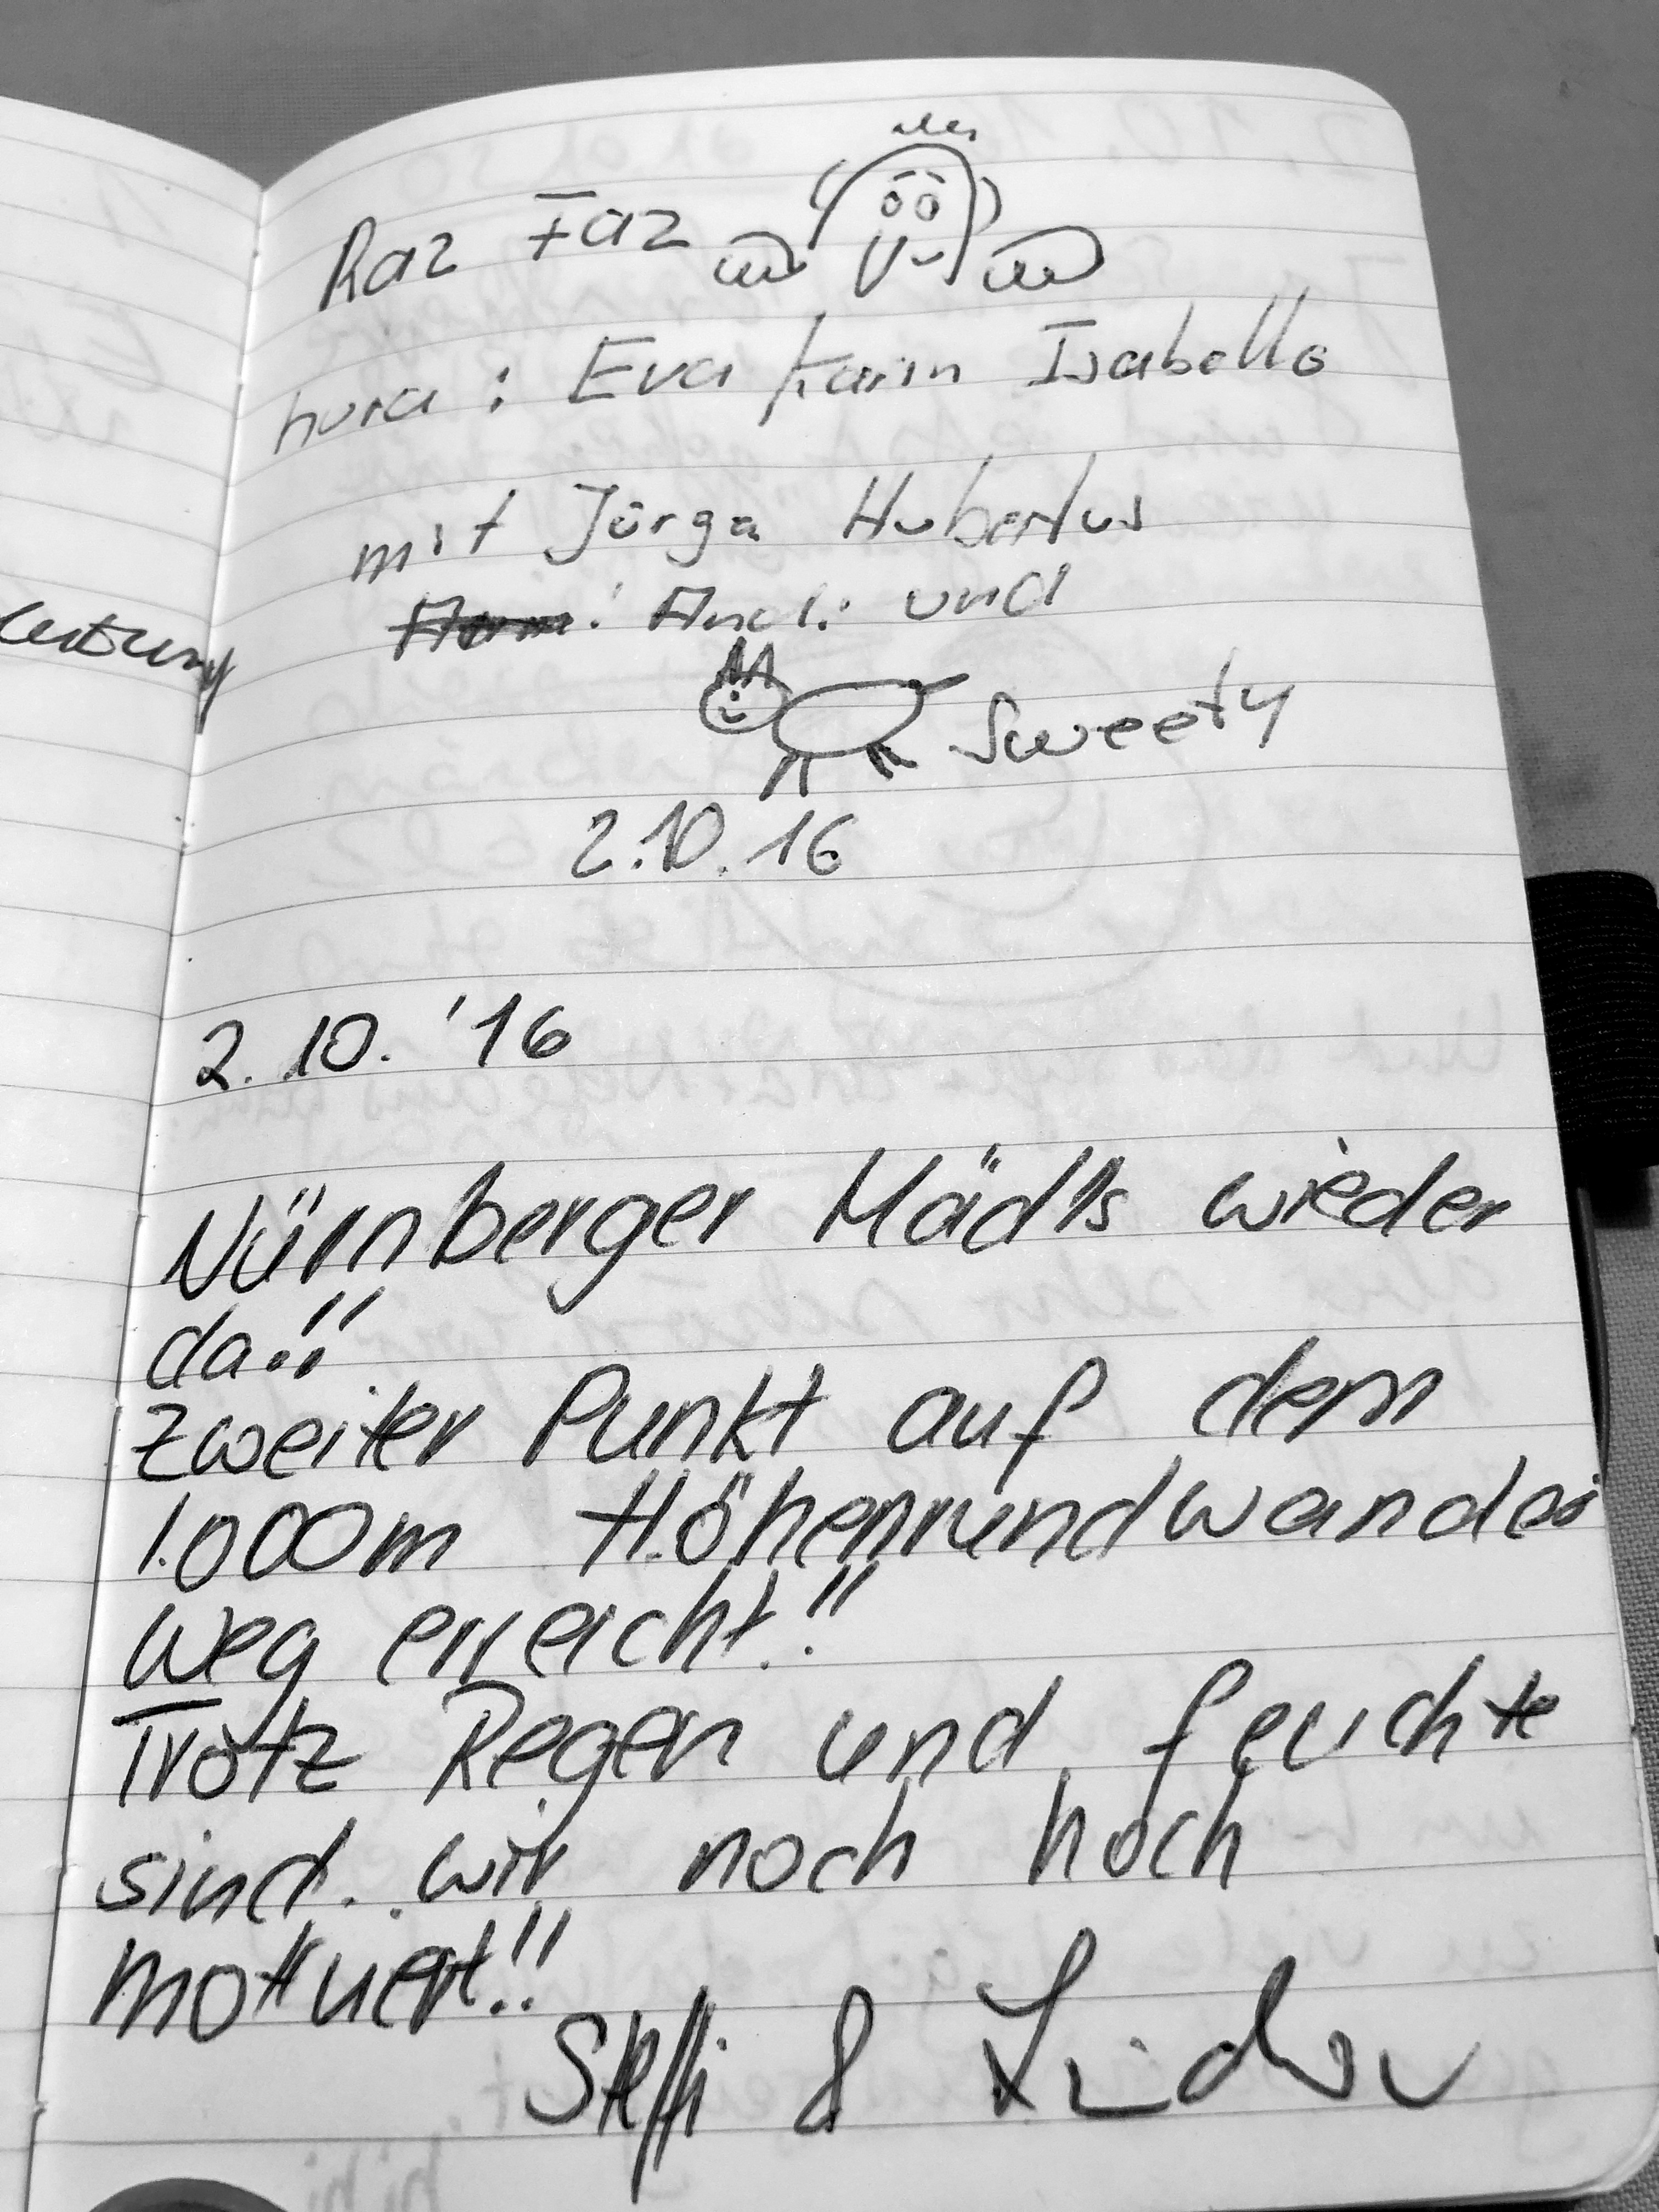 Raz Faz
hura : Eva Karin Isabella
mit Jürga Hubertus
Andi und
Sweety
2.10.16
2. 10. '16
Nürnberger Mädls wieder
da!!
Zweiter Punkt auf dem
1.000m Höhenrundwander
weg erreicht!!
Trotz Regen und feuchte
sind wir noch hoch
motiviert!!
Steffi &